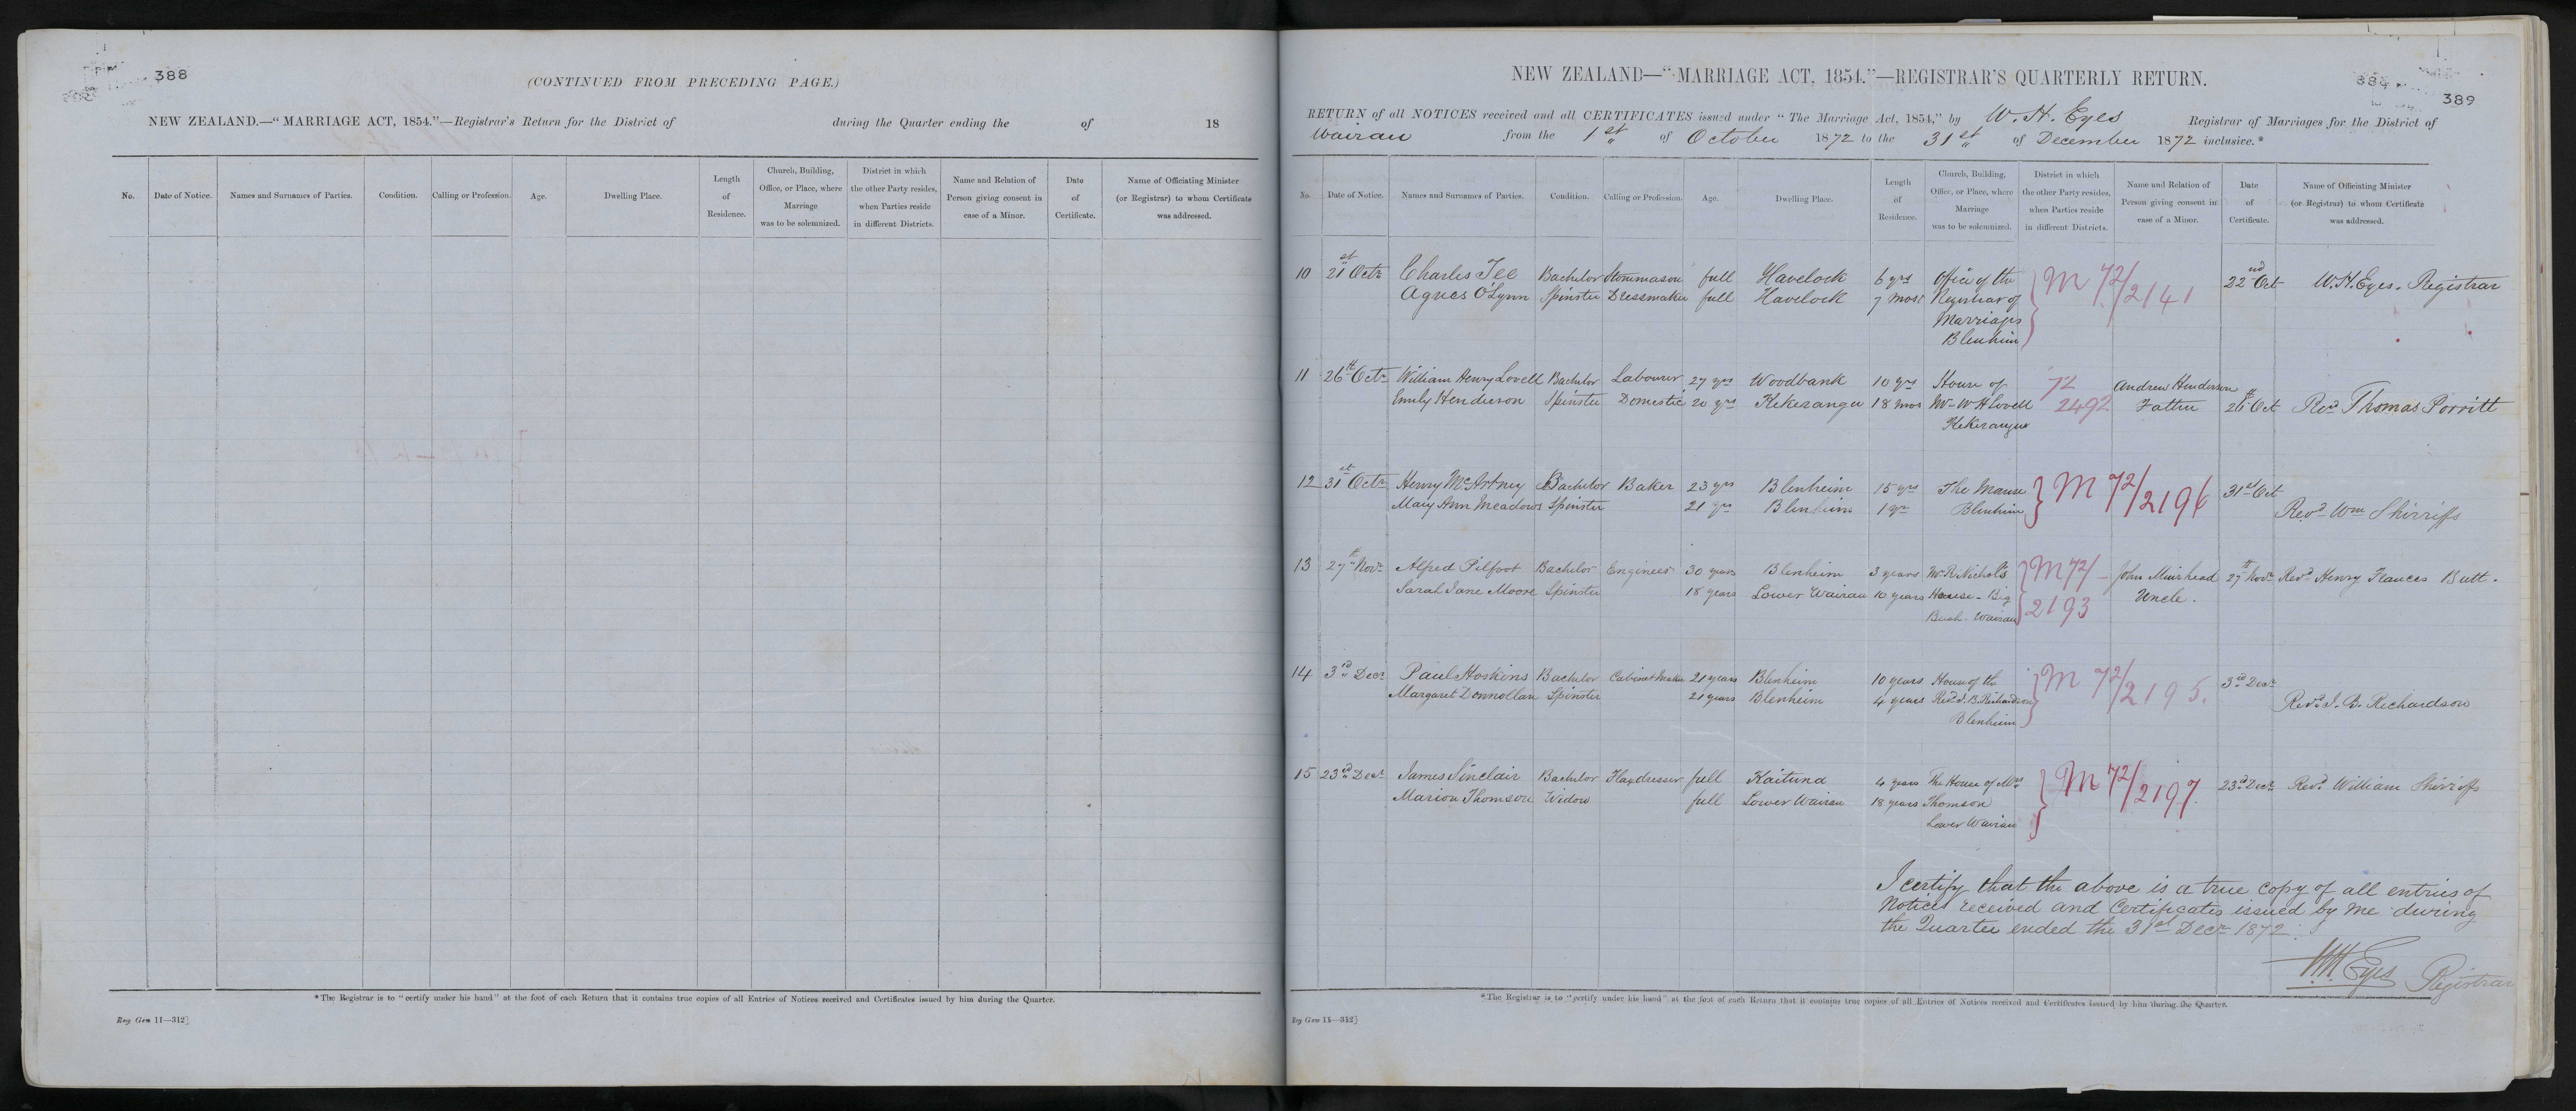 388
(CONTINUED FROM PRECEDING PAGE.)
NEW ZEALAND.—"MARRIAGE ACT, 1854."—Registrar's Return for the District of during the Quarter ending the of 18
No. Date of Notice. Names and Surnames of Parties. Condition. Calling or Profession. Age. Dwelling Place. Length of Residence. Church, Building, Office, or Place, where Marriage was to be solemnized. District in which the other Party resides, when Parties reside in different Districts. Name and Relation of Person giving consent in case of a Minor. Date of Certificate. Name of Officiating Minister (or Registrar) to whom Certificate was addressed.
*The Registrar is to "certify under his hand" at the foot of each Return that it contains true copies of all Entries of Notices received and Certificates issued by him during the Quarter.
Reg Gen 11—312}
389
NEW ZEALAND—"MARRIAGE ACT, 1854."—REGISTRAR'S QUARTERLY RETURN.
RETURN of all NOTICES received and all CERTIFICATES issued under "The Marriage Act, 1854," by W. H. Eyes Registrar of Marriages for the District of
Wairau from the 1st of October 1872 to the 31st of December 1872 inclusive.*
No. Date of Notice. Names and Surnames of Parties. Condition. Calling or Profession. Age. Dwelling Place. Length of Residence. Church, Building, Office, or Place, where Marriage was to be solemnized. District in which the other Party resides, when Parties reside in different Districts. Name and Relation of Person giving consent in case of a Minor. Date of Certificate. Name of Officiating Minister (or Registrar) to whom Certificate was addressed.
10 21st Octr Charles Tee Bachelor Stonemason full Havelock 6 yrs Office of the M 72/2141 22nd Oct W. H. Eyes. Registrar
Agnes O'Lynn Spinster Dressmaker full Havelock 7 mos Registrar of
Marriages
Blenheim
11 26th Octr William Henry Lovell Bachelor Labourer 27 yrs Woodbank 10 yrs House of 72 Andrew Henderson
Emily Henderson Spinster Domestic 20 yrs Kekerangu 18 mos Mr W H Lovell 2492 Father 26th Oct Revd Thomas Porritt
Kekerangu
12 31st Octr Henry McArtney Bachelor Baker 23 yrs Blenheim 15 yrs The Manse M 72/2196 31st Oct
Mary Ann Meadows Spinster 21 yrs Blenheim 1 yr Blenheim Revd Wm Shirriffs
13 27th Novr Alfred Pilfoot Bachelor Engineer 30 years Blenheim 3 years Mr R Nichol's M 72/ John Muirhead 27th Novr Revd Henry Frances Butt.
Sarah Jane Moore Spinster 18 years Lower Wairau 10 years House - Big 2193 Uncle.
Bush - Wairau
14 3rd Decr Paul Hoskins Bachelor Cabinet Maker 21 years Blenheim 10 years House of the M 72/2195. 3rd Decr
Margaret Donnollan Spinster 21 years Blenheim 4 years Revd J. B. Richardson Revd J. B. Richardson
Blenheim
15 23rd Decr James Sinclair Bachelor Flaxdresser full Kaituna 4 years The House of Mrs M 72/2197 23rd Decr Revd William Shirriffs
Marion Thomson Widow full Lower Wairau 18 years Thomson
Lower Wairau
I certify that the above is a true copy of all entries of
Notices received and Certificates issued by me during
the Quarter ended the 31st Decr 1872.
W H Eyes Registrar
*The Registrar is to "certify under his hand" at the foot of each Return that it contains true copies of all Entries of Notices received and Certificates issued by him during the Quarter.
Reg Gen 11—312}